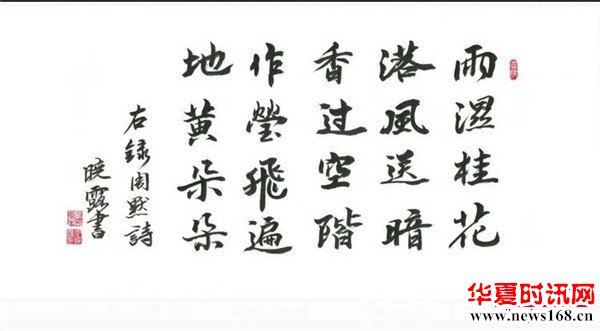 雨濕桂花
落風送暗
香过空階
作瑩飛遍
地黄朵朵
右録周默詩
曉露書
华夏时讯网
www.news168.cn